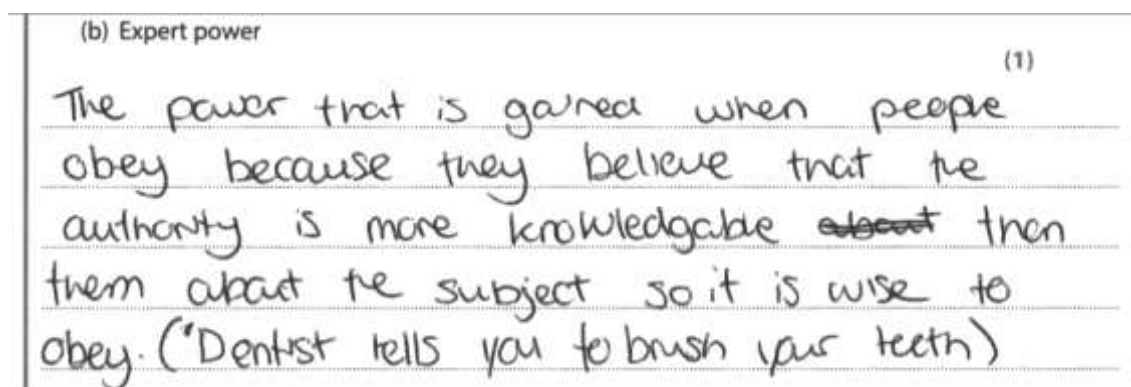 (b) Expert power
(1)
The power that is gained when people
obey because they believe that the
authority is more knowledgable ~~about~~ than
them about the subject so it is wise to
obey. ("Dentist tells you to brush your teeth)